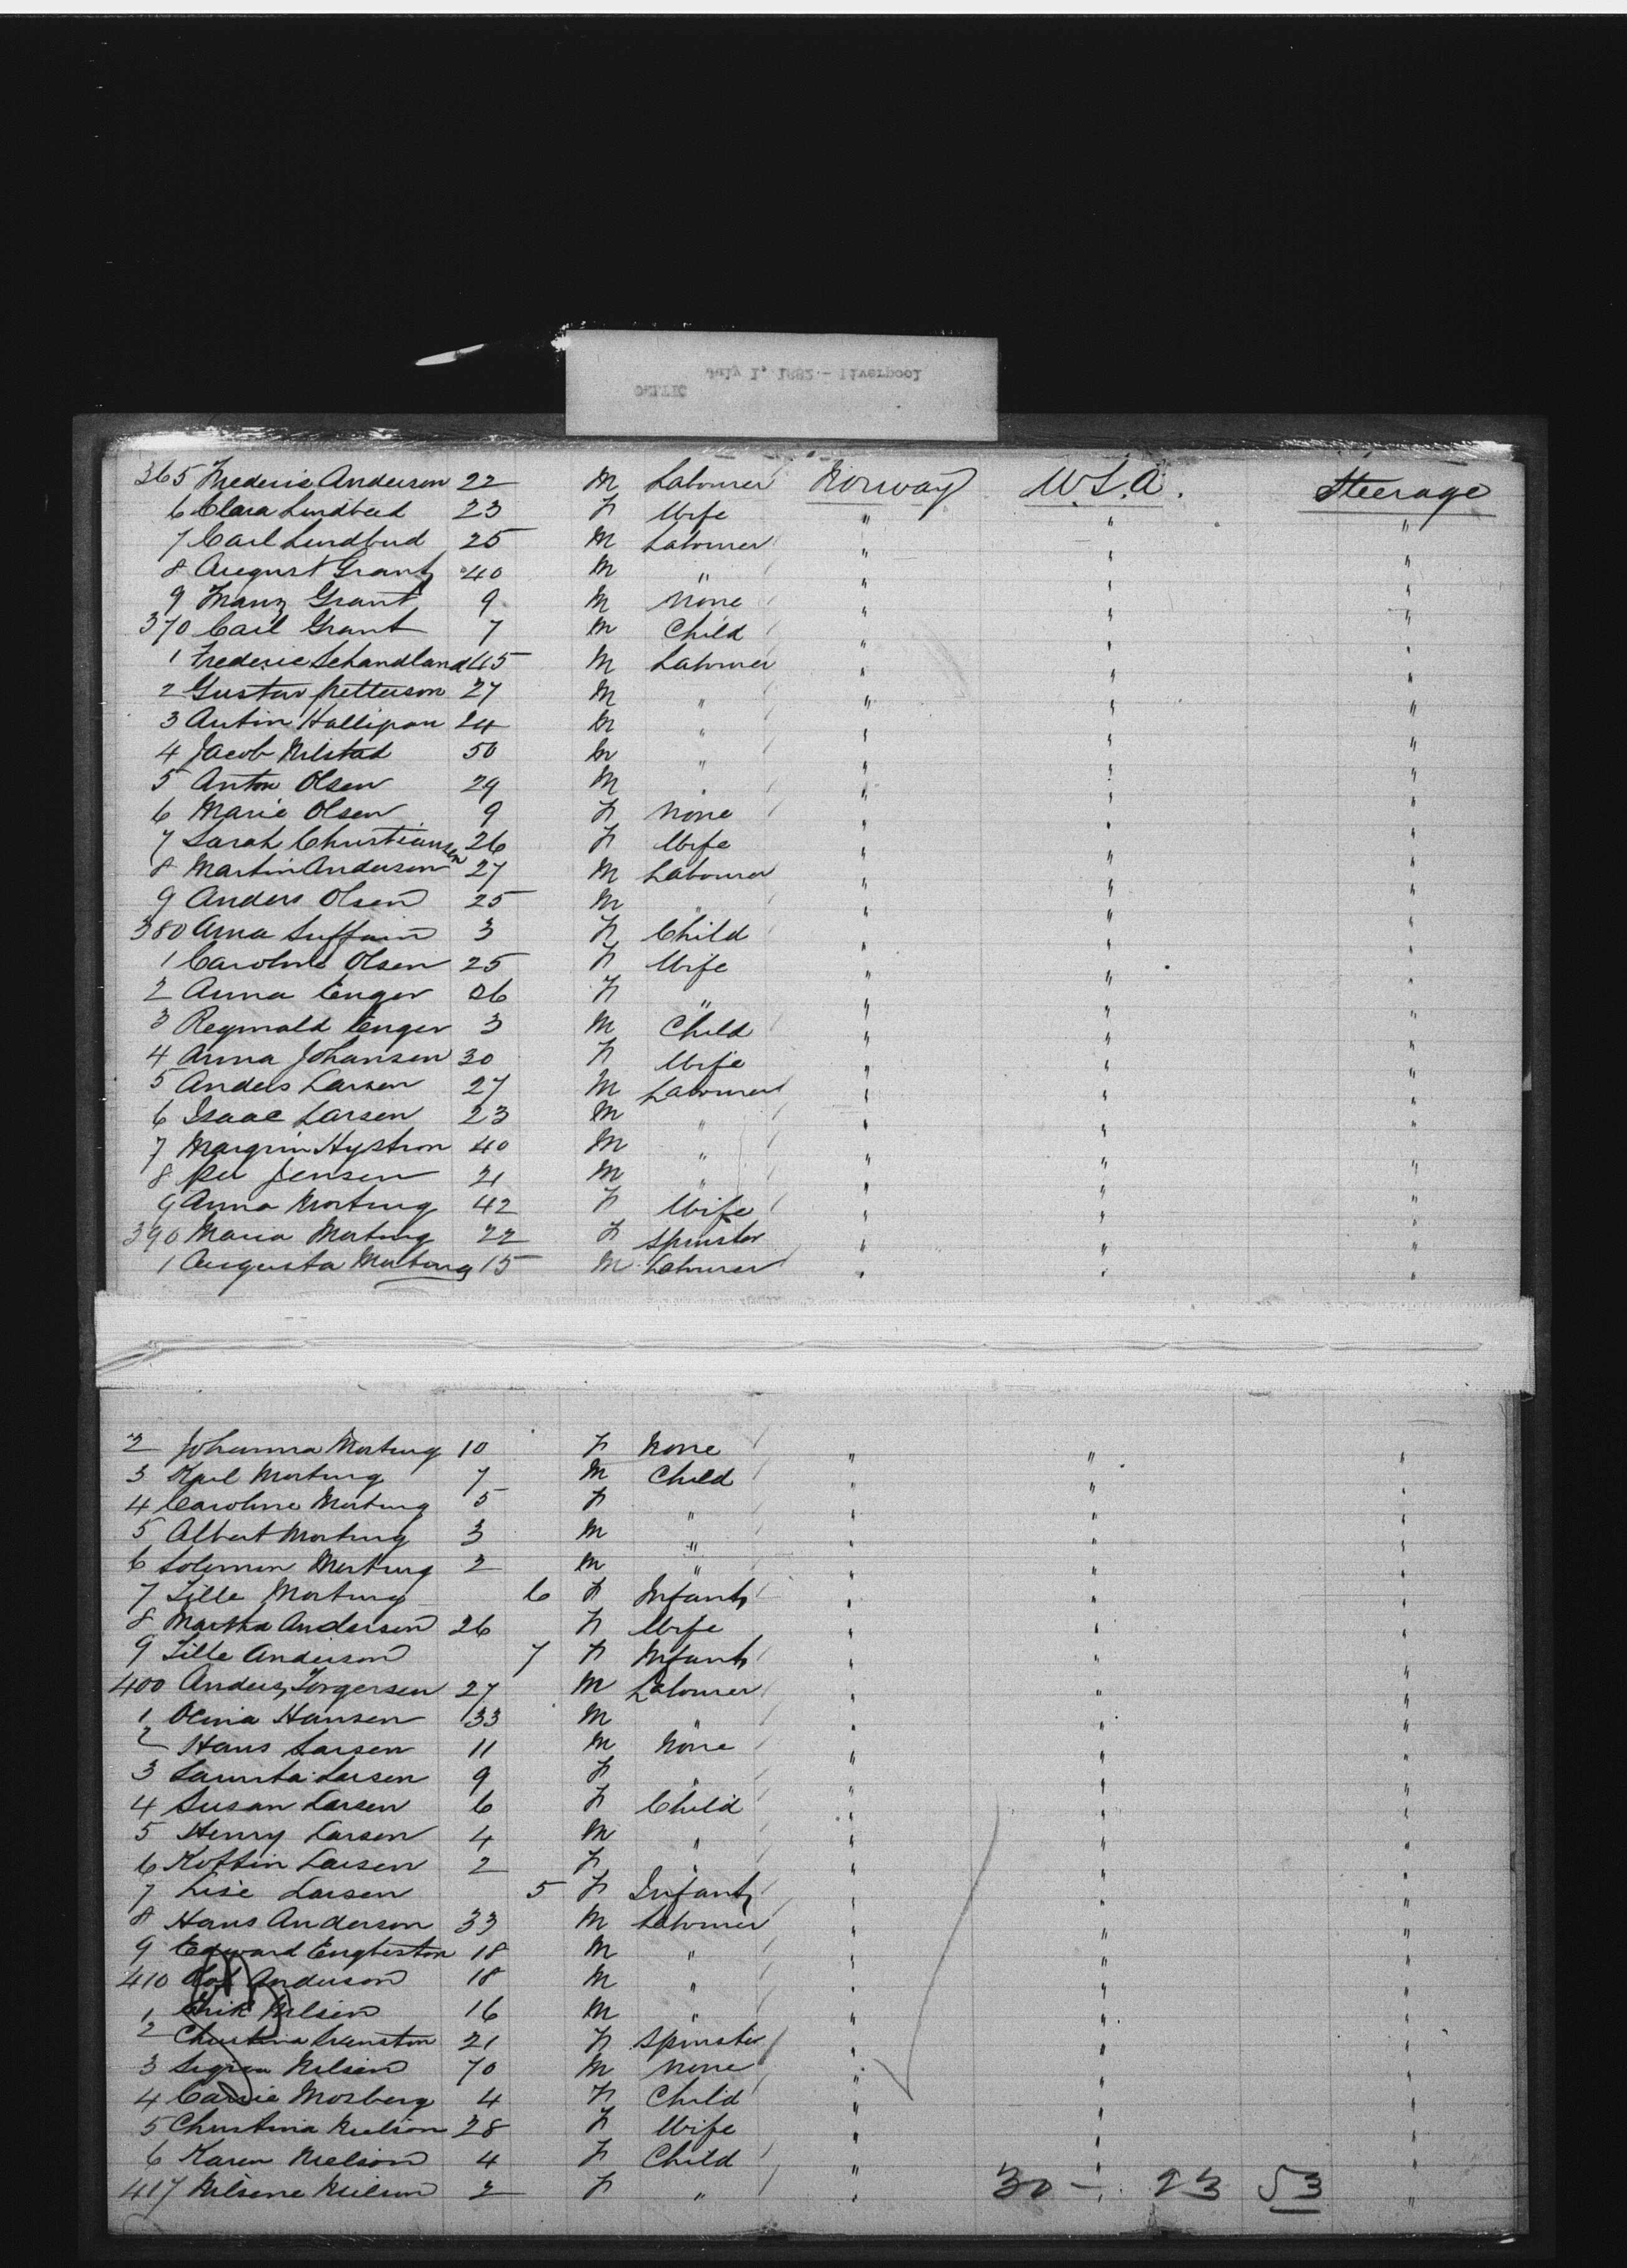 CELTIC
July 1, 1882 - Liverpool
365 Frederic Anderson 22 M Labourer Norway U.S.A. Steerage
6 Clara Lindbeed 23 F Wife " " "
7 Carl Lindbud 25 M Labourer " " "
8 August Grantz 40 M " " " "
9 Franz Grant 9 M None " " "
370 Carl Grant 7 M Child " " "
1 Frederic Schandland 45 M Labourer " " "
2 Gustav Petterson 27 M " " " "
3 Antin Hallipon 24 M " " " "
4 Jacob Nilstad 50 M " " " "
5 Anton Olsen 29 M " " " "
6 Marie Olsen 9 F None " " "
7 Sarah Christiansen 26 F Wife " " "
8 Martin Anderson 27 M Labourer " " "
9 Anders Olsen 25 M " " " "
380 Anna 3 F Child " " "
1 Caroline Olsen 25 F Wife " " "
2 Anna Enger 26 F " " " "
3 Reginald Enger 3 M Child " " "
4 Anna Johansen 30 F Wife " " "
5 Anders Larsen 27 M Labourer " " "
6 Isaac Larsen 23 M " " " "
7 Hystron 40 M " " " "
8 Per Jensen 21 M " " " "
9 Anna Mortung 42 F Wife " " "
390 Maria Mortung 22 F Spinster " " "
1 Augusta Mortung 15 M Labourer " " "
2 Johanna Mortung 10 F None " " "
3 Karl Mortung 7 M Child " " "
4 Caroline Mortung 5 F " " " "
5 Albert Mortung 3 M " " " "
6 Solomon Mortung 2 M " " " "
7 Lille Mortung 6 F Infant " " "
8 Martha Anderson 26 F Wife " " "
9 Lille Anderson 7 F Infant " " "
400 Anders Torgersen 27 M Labourer " " "
1 Olina Hansen 33 M " " " "
2 Hans Larsen 11 M None " " "
3 Laurita Larsen 9 F " " " "
4 Susan Larsen 6 F Child " " "
5 Henry Larsen 4 M " " " "
6 Larsen 2 F " " " "
7 Lise Larsen 5 F Infant " " "
8 Hans Anderson 33 M Labourer " " "
9 Edward Engbertson 18 M " " " "
410 Olof Anderson 18 M " " " "
1 Erik Nilsen 16 M " " " "
2 Christina 21 F Spinster " " "
3 Nilsen 70 M None " " "
4 Carrie Mosberg 4 F Child " " "
5 Christina Neilson 28 F Wife " " "
6 Karen Nielson 4 F Child " " "
417 Nilsine Neilson 2 F " " " "
30 - 23 53